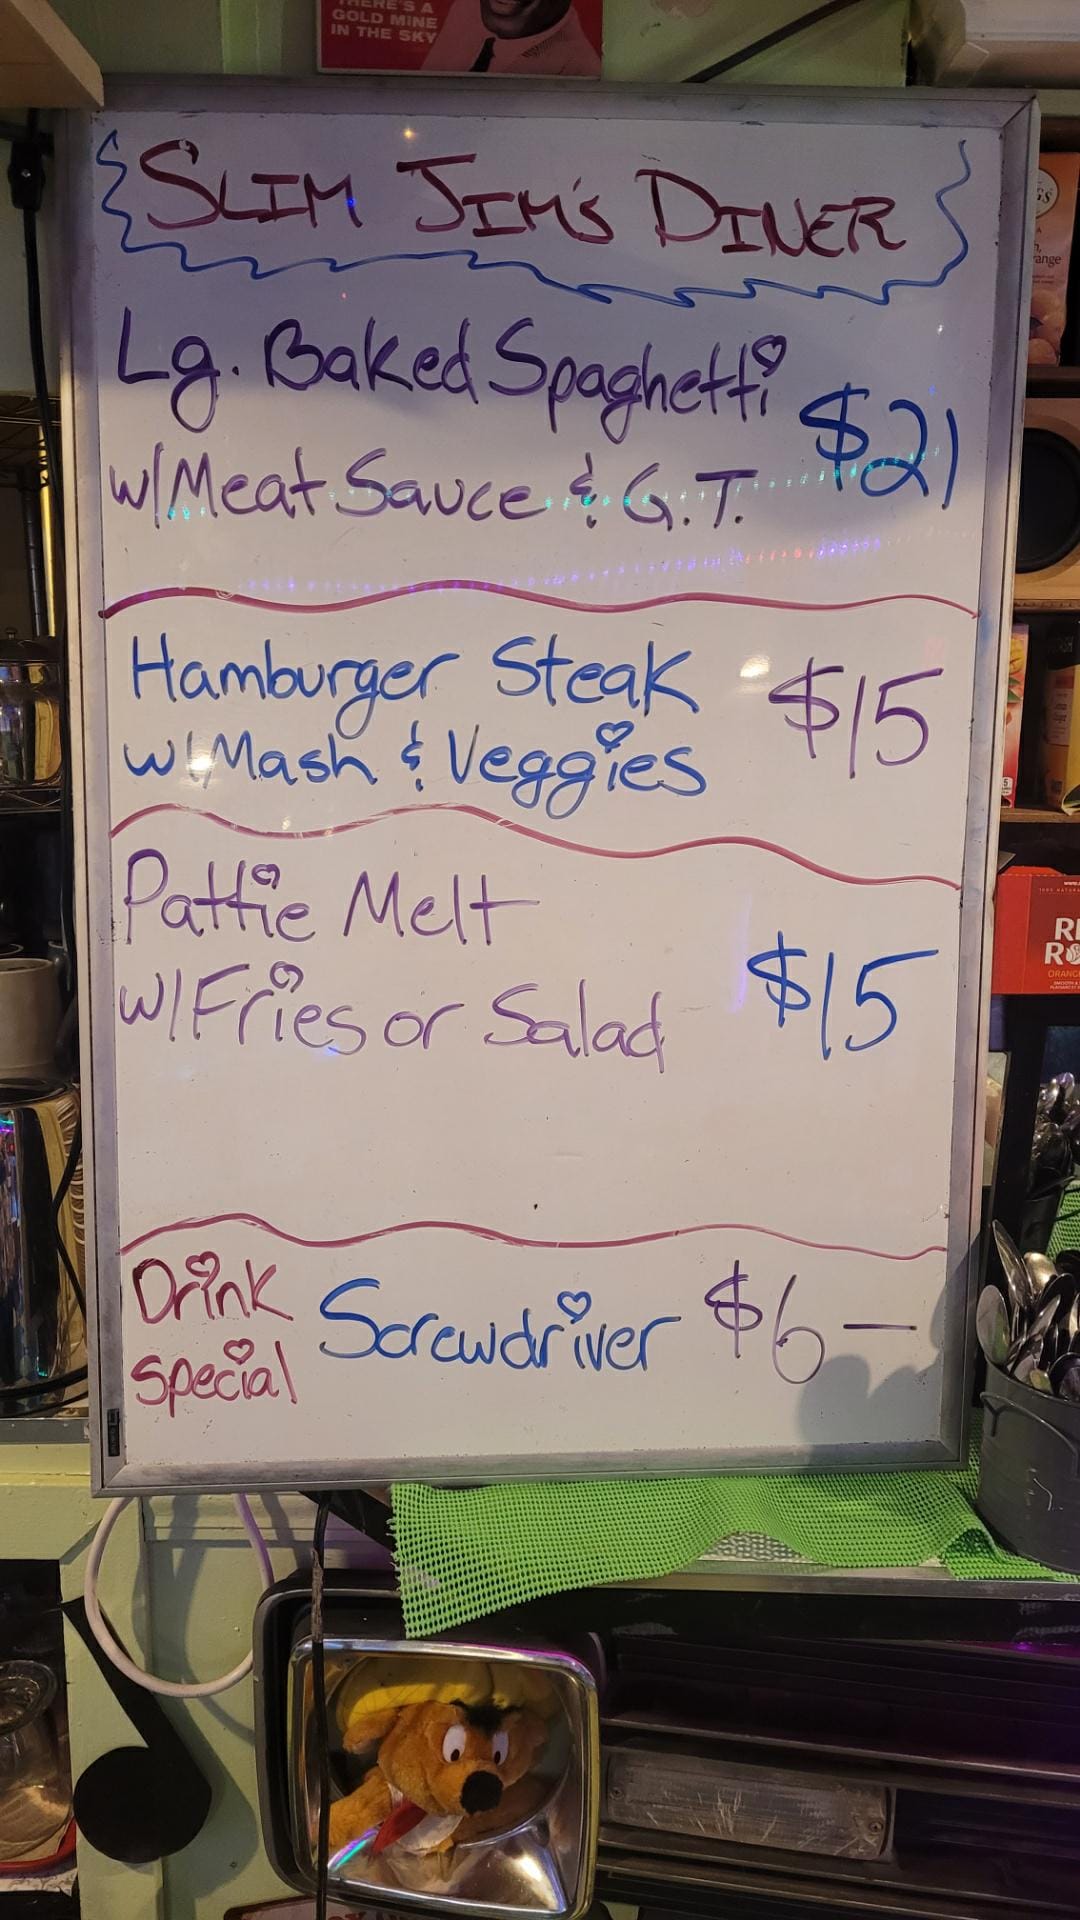 THERE'S A
GOLD MINE
IN THE SKY
SLIM JIM'S DINER
Lg. Baked Spaghetti
w/Meat Sauce & G.T.
$21
Hamburger Steak
w/Mash & Veggies
$15
Pattie Melt
w/Fries or Salad
$15
Drink
Special
Screwdriver
$6—